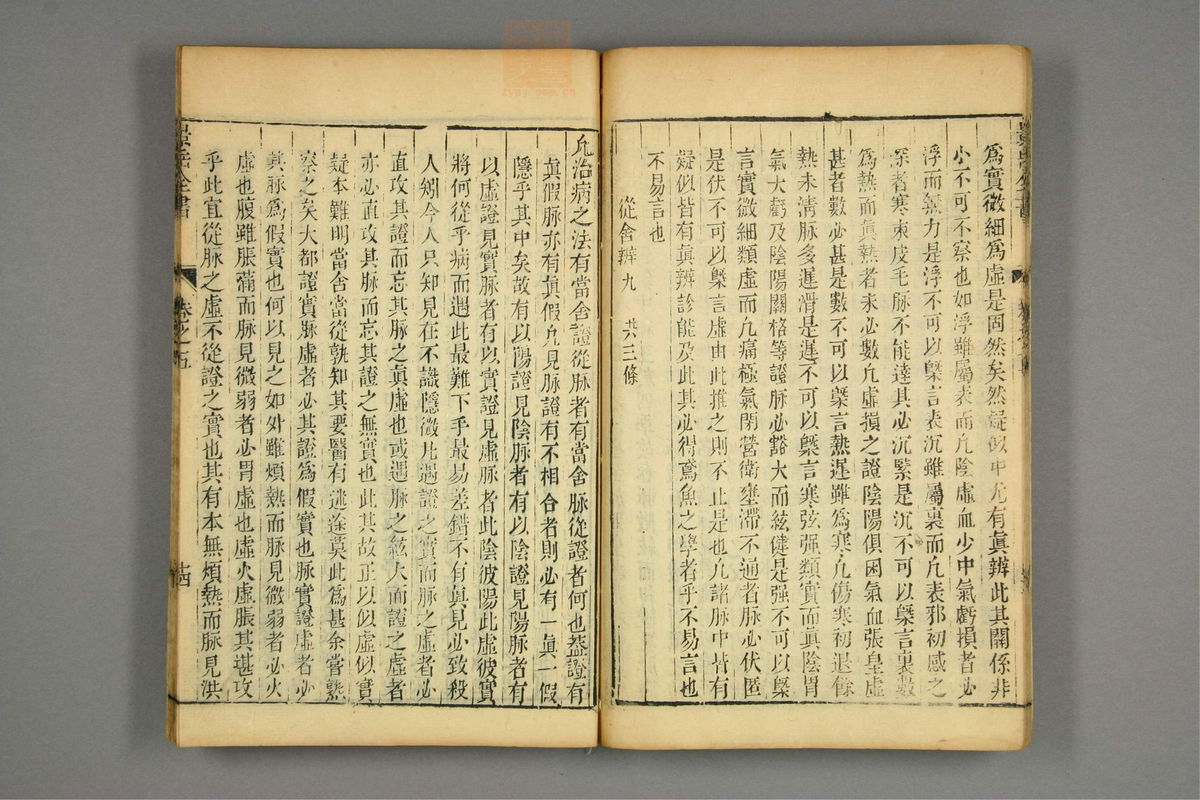 為實微細為虛是固然矣然疑似中尤有眞辨此其關係非
小不可不察也如浮雖屬表而凢陰虛血少中氣虧損者必
浮而無力是浮不可以槩言表沉雖屬裏而凢表邪初感之
深者寒束皮毛脉不能達其必沉緊是沉不可以槩言裏數
爲熱而眞熱者未必數凢虛損之證陰陽俱困氣血張皇虛
甚者數必甚是數不可以槩言熱遲雖爲寒凢傷寒初退餘
熱未清脉多遲滑是遲不可以槩言寒弦强類實而眞陰胃
氣大虧及陰陽關格等證脉必豁大而絃健是强不可以槩
言實微細類虛而凢痛極氣閉營衛壅滯不通者脉必伏匿
是伏不可以槩言虛由此推之則不止是也凢諸脉中皆有
疑似皆有眞辨診能及此其必得鳶魚之學者乎不易言也
不易言也
從舍辨九 共三條
凢治病之法有當舍證從脉者有當舍脉從證者何也蓋證有
眞假脉亦有眞假凢見脉證有不相合者則必有一眞一假
隱乎其中矣故有以陽證見陰脉者有以陰證見陽脉者有
以虛證見實脉者有以實證見虛脉者此陰彼陽此虛彼實
將何從乎病而遇此最難下手最易差錯不有眞見必致殺
人矧今人只知見在不識隱微凢遇證之實而脉之虛者必
直攻其證而忘其脉之眞虛也或遇脉之絃大而證之虛者
亦必直攻其脉而忘其證之無實也此其故正以似虛似實
疑本難明當舍當從孰知其要醫有迷途莫此爲甚余嘗熟
察之矣大都證實脉虛者必其證爲假實也脉實證虛者必
其脉爲假實也何以見之如外雖煩熱而脉見微弱者必火
虛也腹雖脹滿而脉見微弱者必胃虛也虛火虛脹其堪攻
乎此宜從脉之虛不從證之實也其有本無煩熱而脉見洪
景岳全書
卷之五